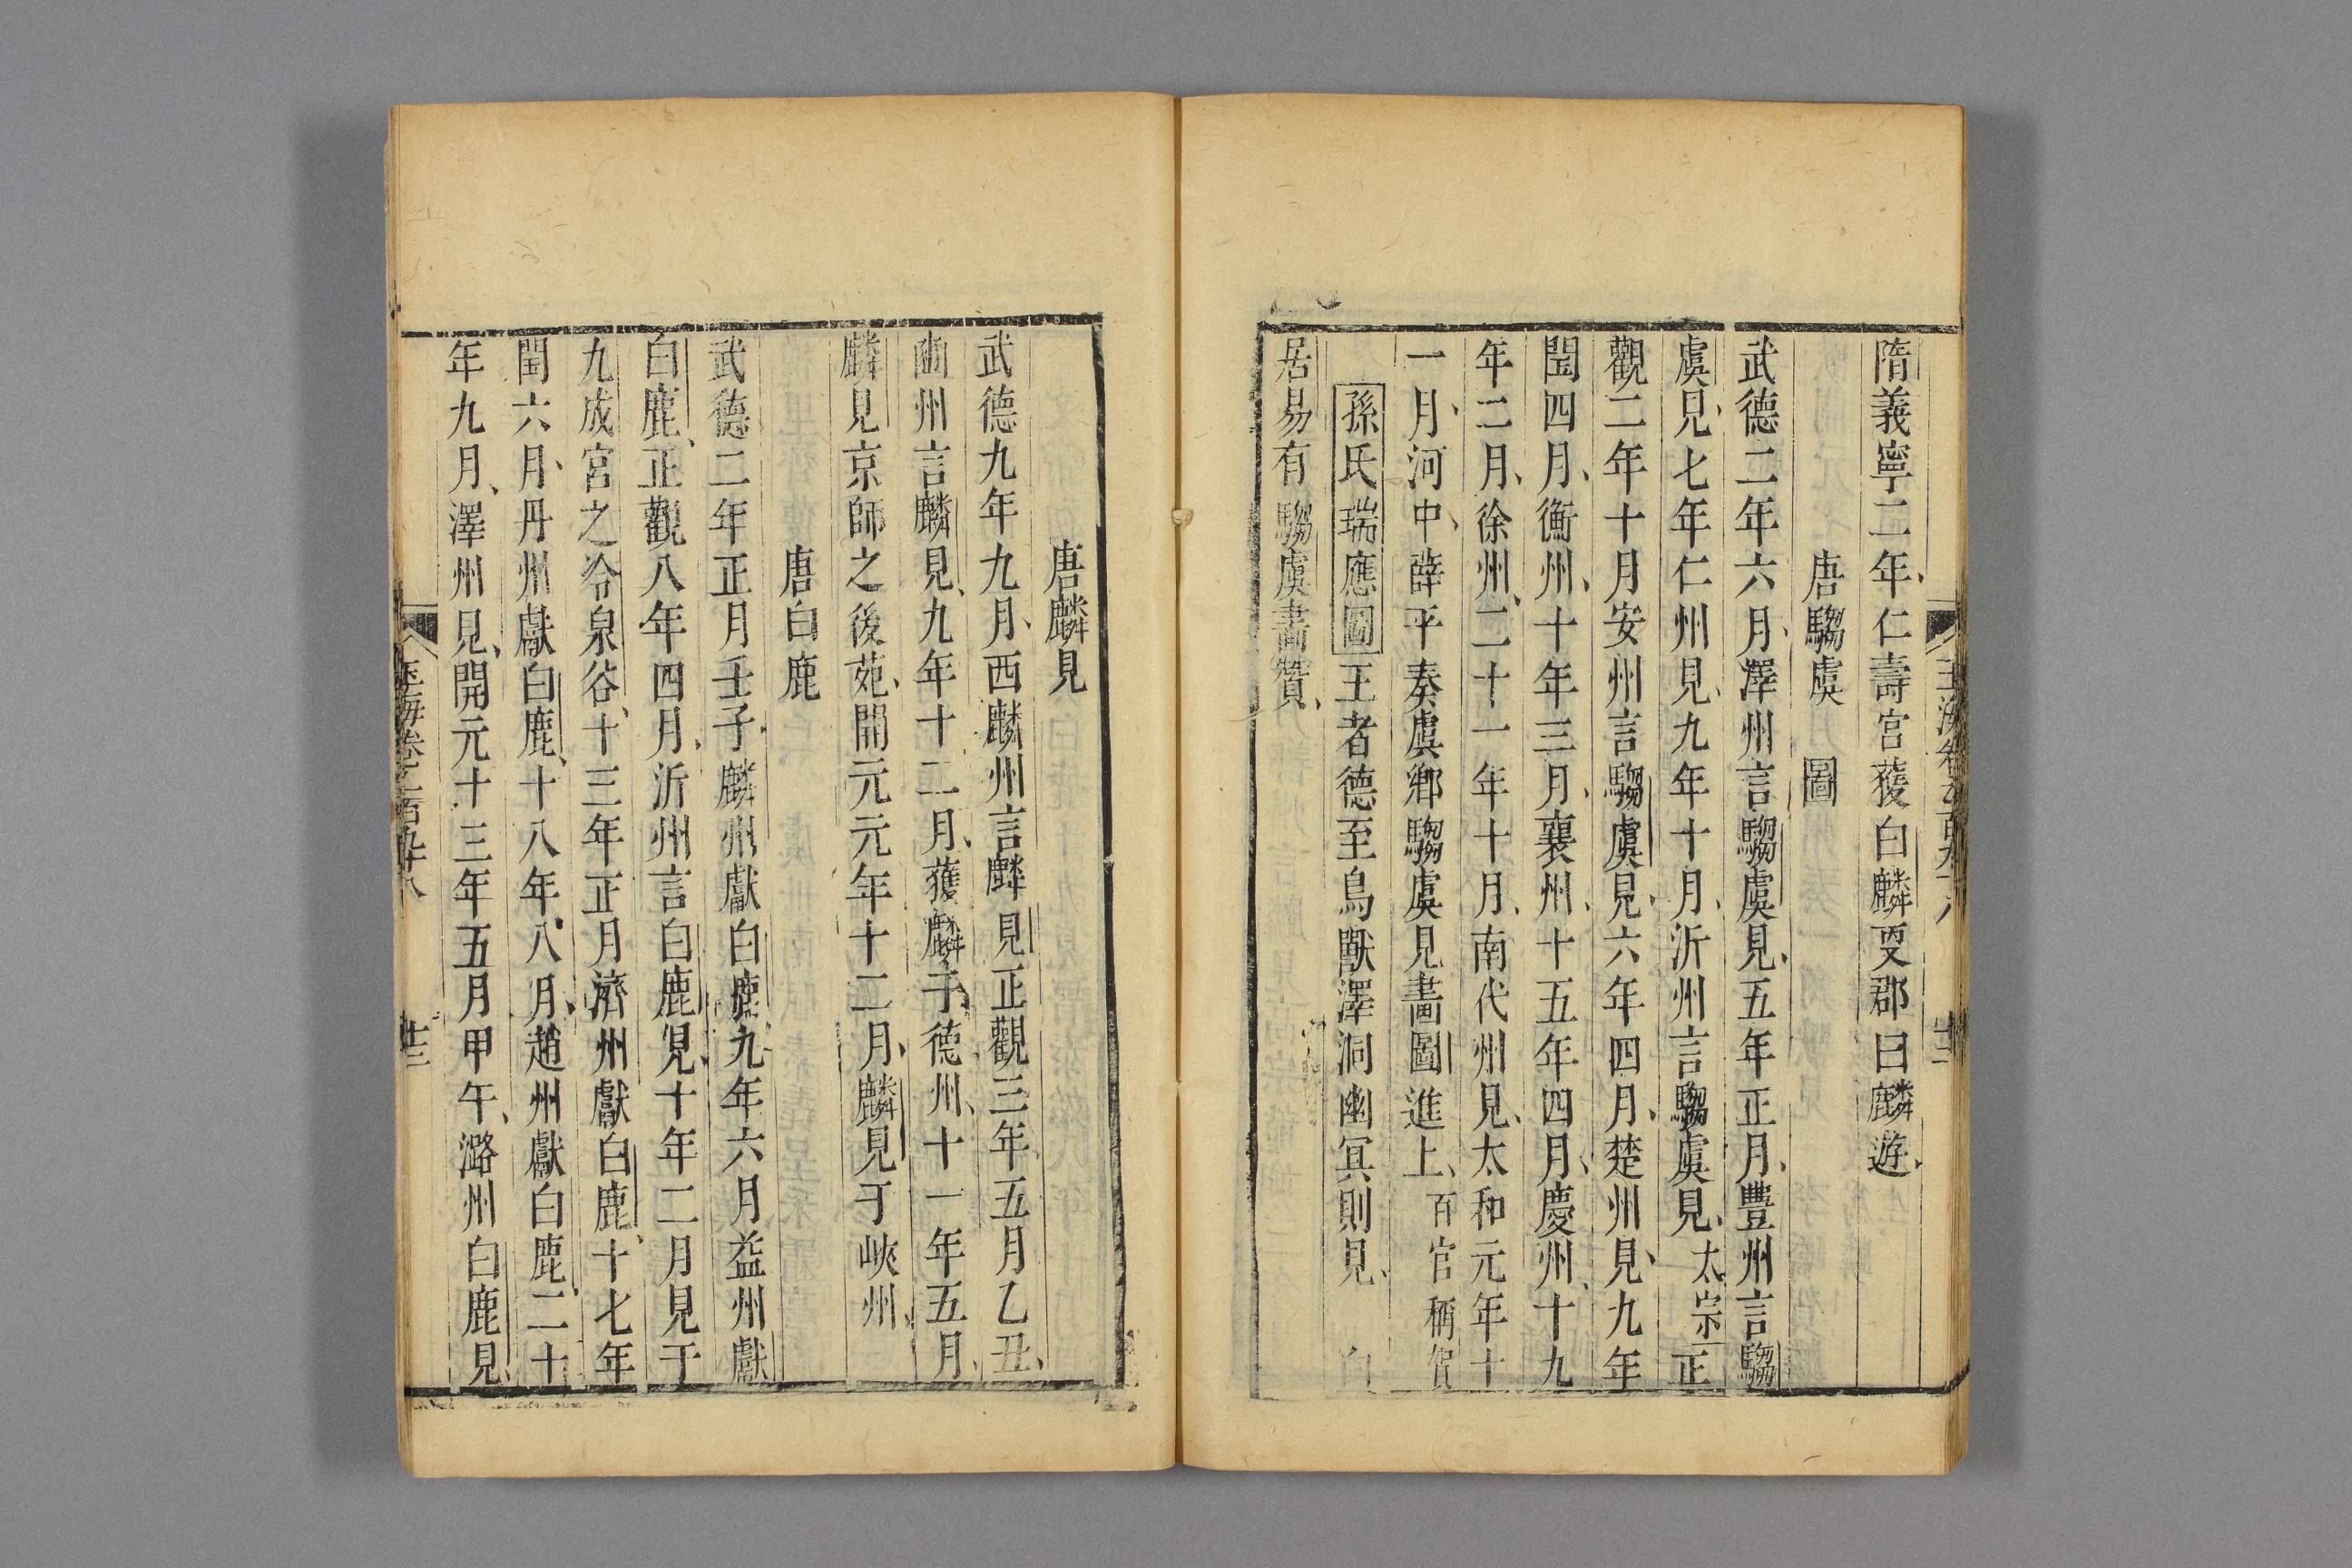 隋義寧二年仁壽宮獲白麟更郡曰麟遊
唐騶虞　圖
武德二年六月澤州言騶虞見五年正月豊州言騶
虞見七年仁州見九年十月沂州言騶虞見太宗正
觀二年十月安州言騶虞見六年四月楚州見九年
閏四月衡州十年三月襄州十五年四月慶州十九
年二月徐州二十一年十月南代州見太和元年十
一月河中薛平奏虞鄉騶虞見畫圖進上百官稱賀
孫氏瑞應圖王者德至鳥獸澤洞幽冥則見　白
居易有騶虞畫贊
唐麟見
武德九年九月西麟州言麟見正觀三年五月乙丑
幽州言麟見九年十二月獲麟于德州十一年五月
麟見京師之後苑開元元年十二月麟見于峽州
唐白鹿
武德二年正月壬子麟州獻白鹿九年六月益州獻
白鹿正觀八年四月沂州言白鹿見十年二月見于
九成宮之冷泉谷十三年正月濟州獻白鹿十七年
閏六月丹州獻白鹿十八年八月趙州獻白鹿二十
年九月澤州見開元十三年五月甲午潞州白鹿見